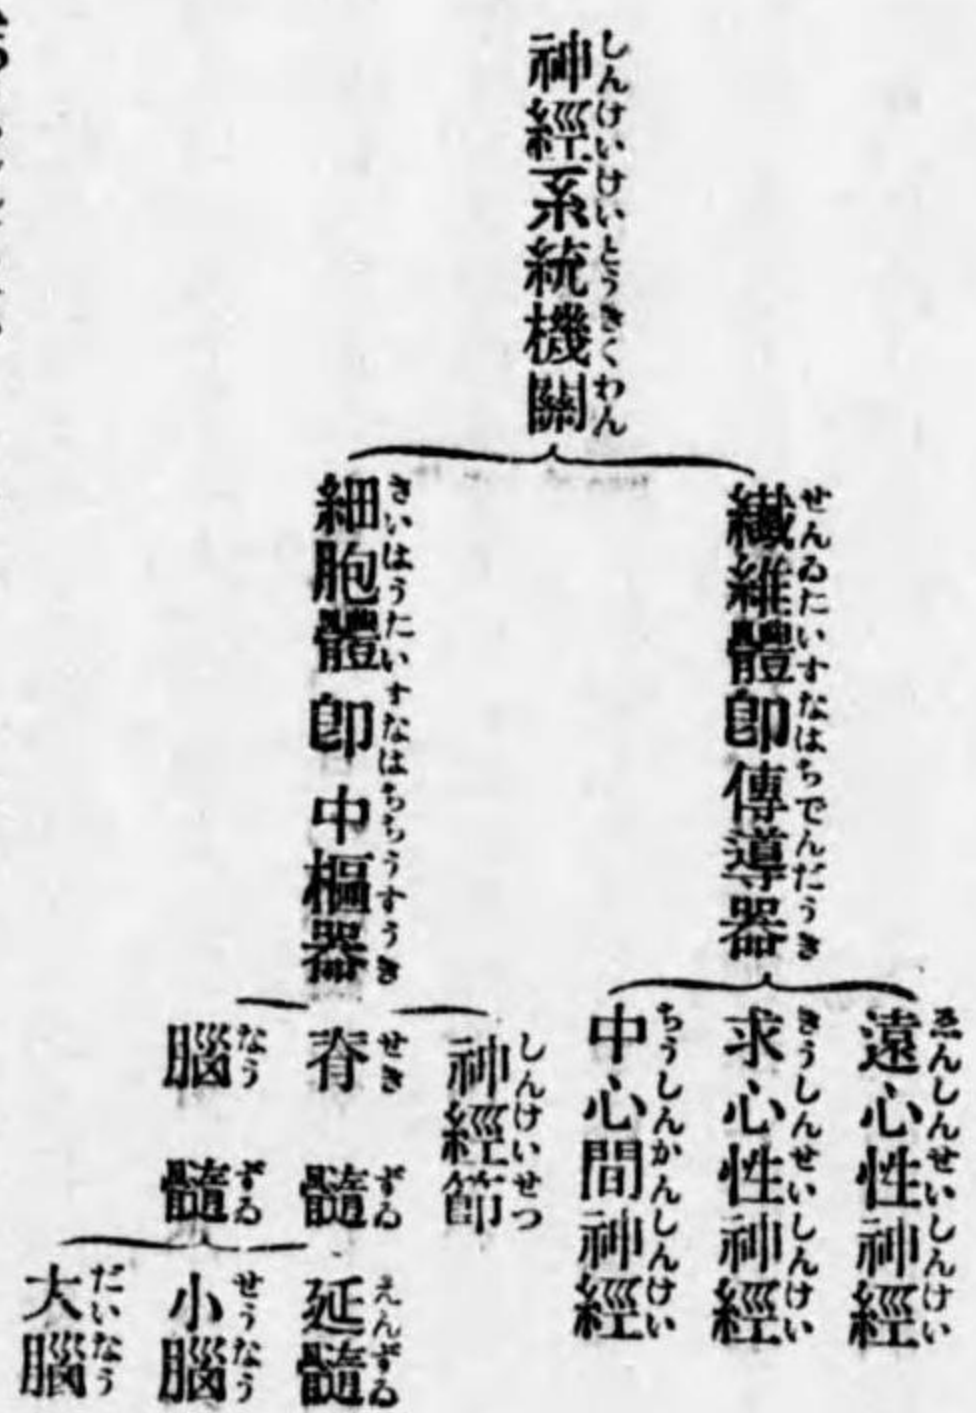 神經系統機關
しんけいけいとうきくわん
纎維體卽傳導器
せんゐたいすなはちでんだうき
遠心性神經
ゑんしんせいしんけい
求心性神經
きうしんせいしんけい
中心間神經
ちうしんかんしんけい
細胞體卽中樞器
さいはうたいすなはちちうすうき
神經節
しんけいせつ
脊髓
せきずゐ
腦髓
なうずゐ
延髓
えんずゐ
小腦
せうなう
大腦
だいなう